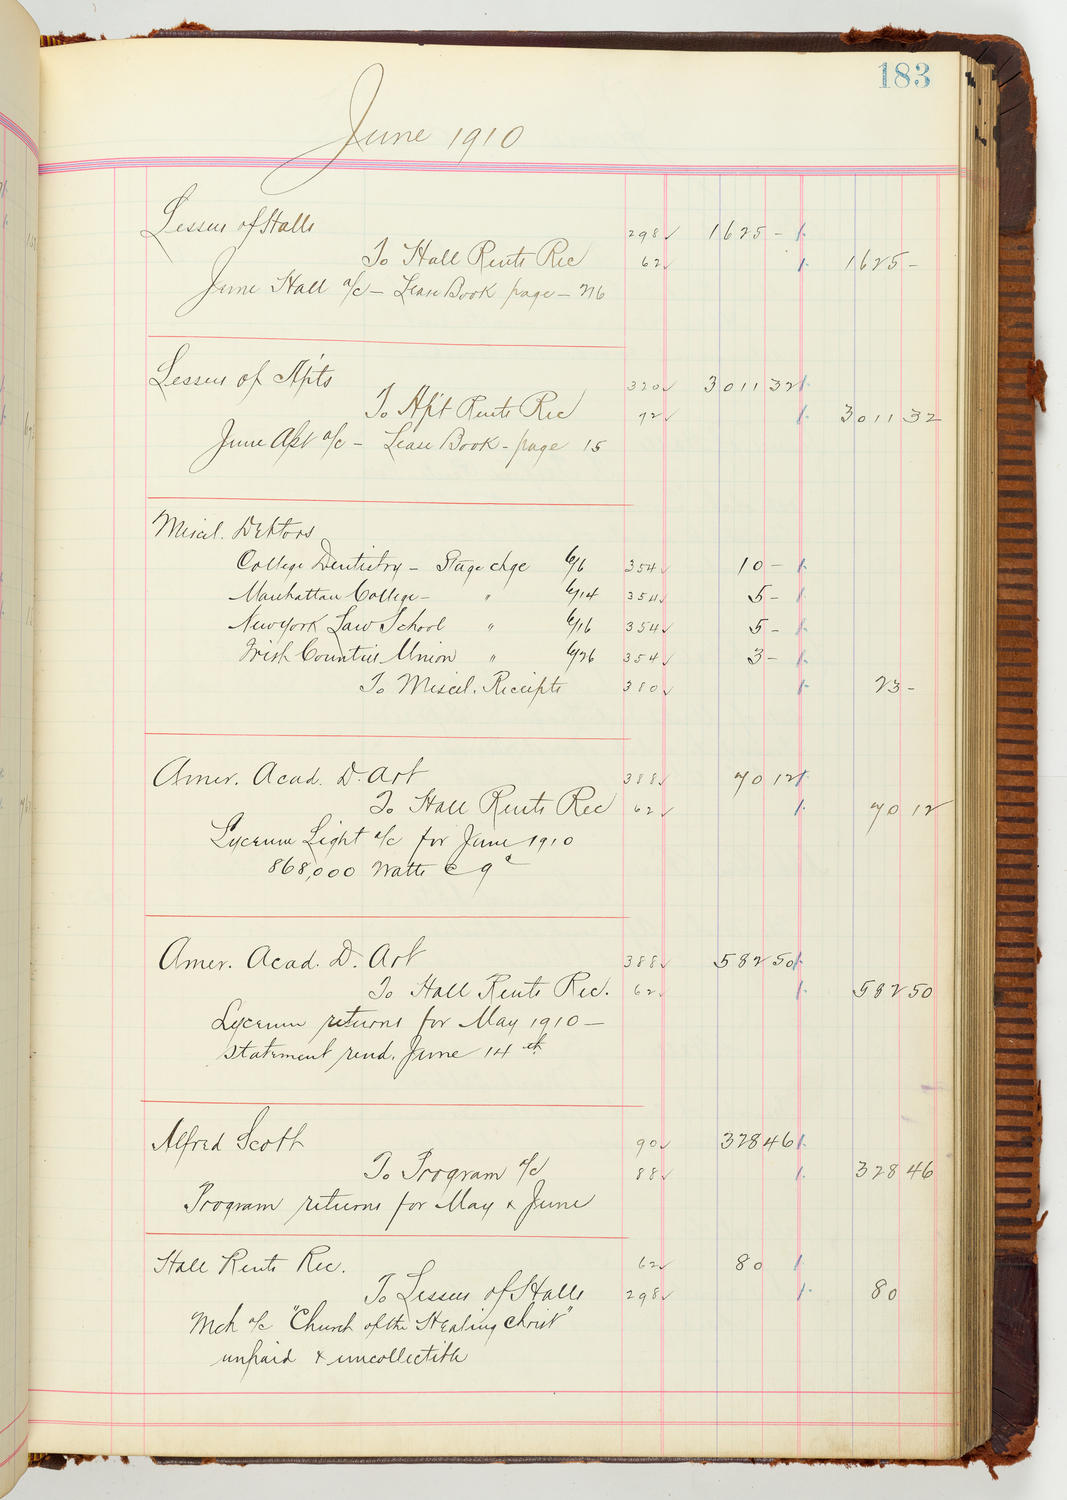 183
June 1910
Lessees of Halls 298 1625 -
To Hall Rents Rec 62 1625 -
June Hall a/c - Lease Book page - 276
Lessees of Apts 320 3011 32
To Apt Rents Rec 92 3011 32
June Apt a/c - Lease Book - page 15
Miscel. Debtors
College Dentistry - Stage chge 6/6 354 10 -
Manhattan College - " 6/14 354 5 -
New York Law School " 6/16 354 5 -
Irish Counties Union " 6/26 354 3 -
To Miscel. Receipts 380 23 -
Amer. Acad. D. Art 388 70 12
To Hall Rents Rec 62 70 12
Lyceum Light a/c for June 1910
868,000 watts @ 9c
Amer. Acad. D. Art 388 582 50
To Hall Rents Rec. 62 582 50
Lyceum returns for May 1910 -
statement rend. June 14th
Alfred Scott 90 328 46
To Program a/c 88 328 46
Program returns for May & June
Hall Rents Rec. 62 80
To Lessees of Halls 298 80
Mch a/c "Church of the Healing Christ"
unpaid & uncollectible